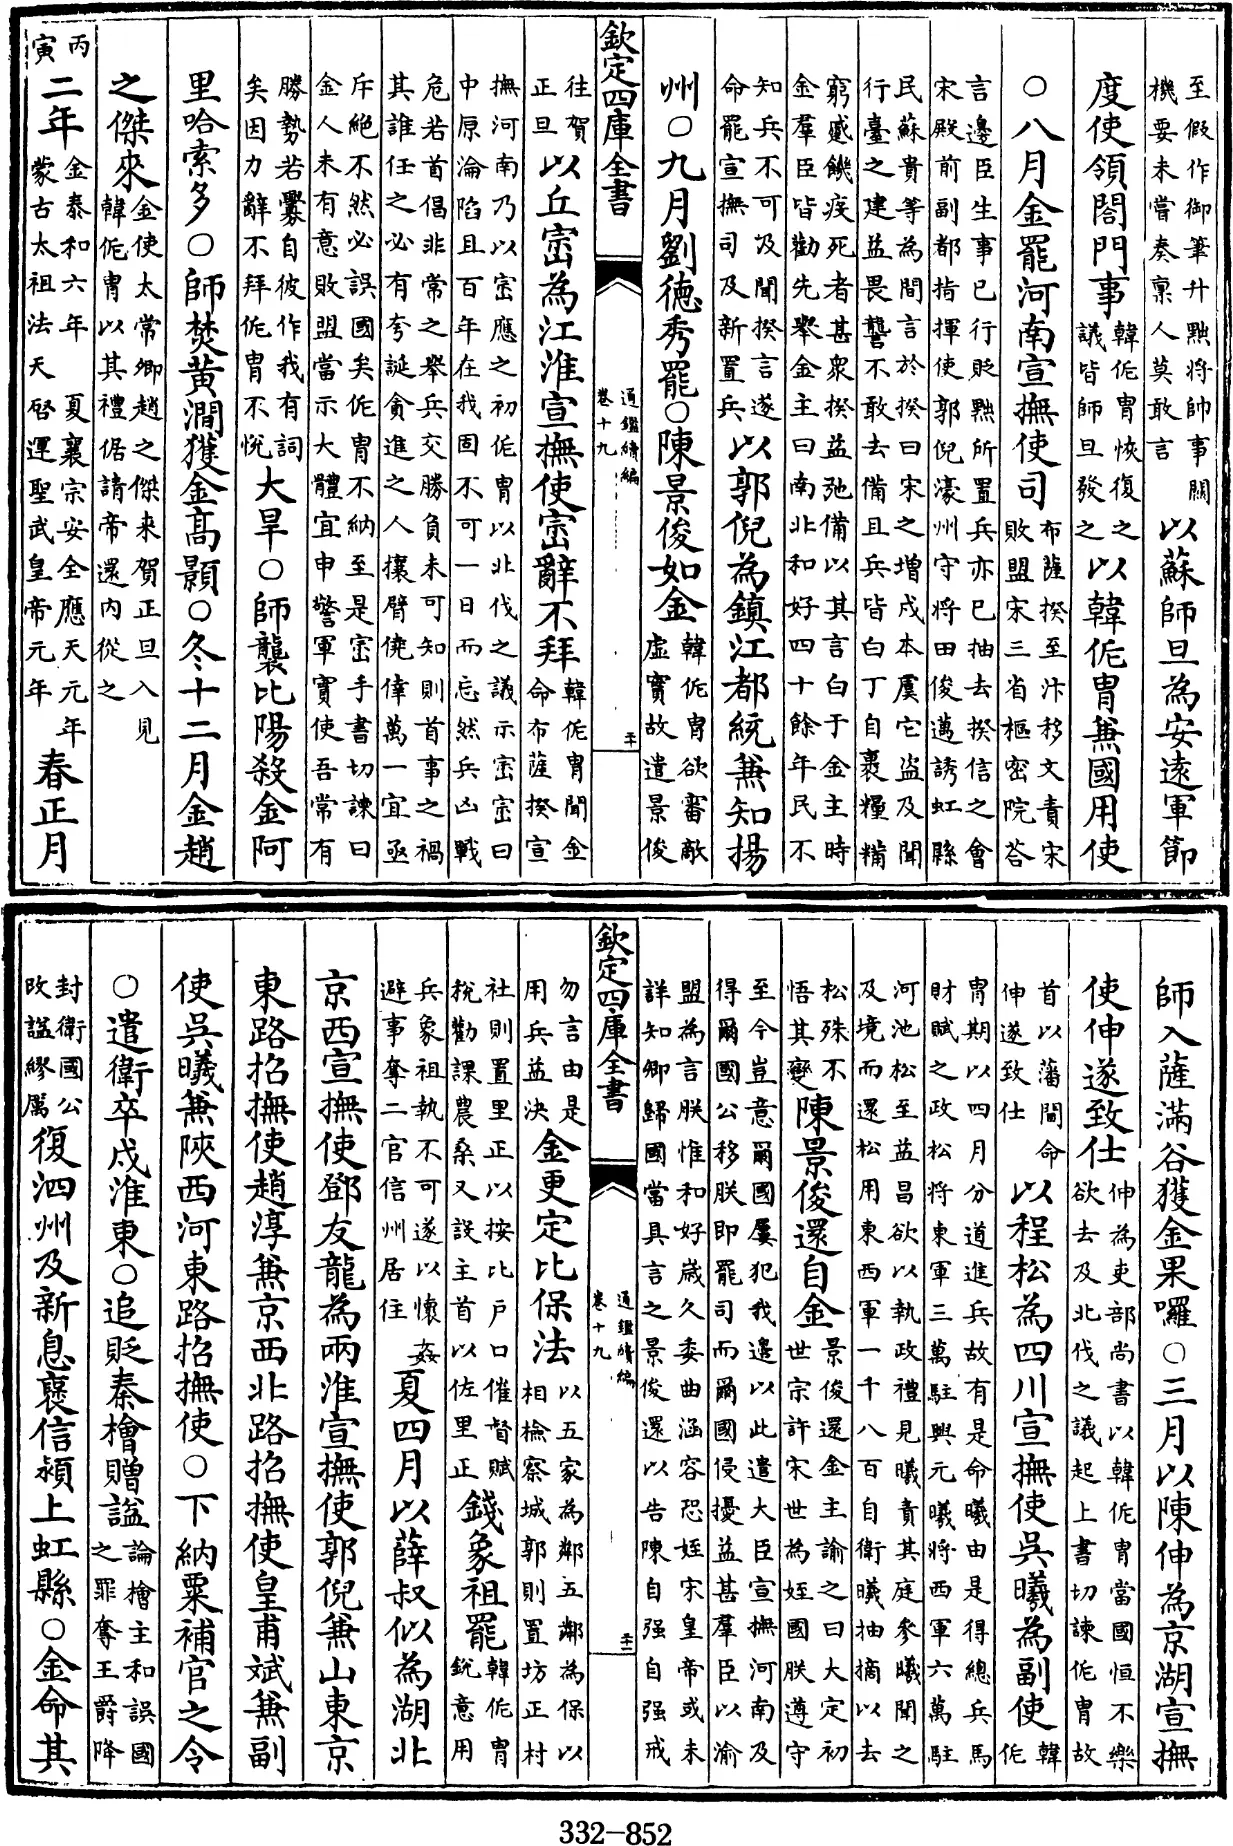 至假作御筆升黜將帥事關機要未嘗奏稟人莫敢言以蘇師旦為安遠軍節
度使領閤門事韓侂冑恢復之議皆師旦發之以韓侂冑兼國用使
○八月金罷河南宣撫使司布薩揆至汴移文責宋敗盟宋三省樞密院荅
言邊臣生事已行貶黜所置兵亦已抽去揆信之會宋殿前副都指揮使郭倪濠州守將田俊邁誘虹縣
民蘇貴等為間言於揆曰宋之增戍本虞它盜及聞行臺之建益畏讋不敢去備且兵皆白丁自裹糧糒
窮蹙饑疫死者甚衆揆益弛備以其言白于金主時金羣臣皆勸先舉金主曰南北和好四十餘年民不
知兵不可及聞揆言遂命罷宣撫司及新置兵以郭倪為鎮江都統兼知揚
州○九月劉德秀罷○陳景俊如金韓侂冑欲審敵虛實故遣景俊
欽定四庫全書 通鑑續編卷十九 二十
往賀正旦以丘崈為江淮宣撫使崈辭不拜韓侂冑聞金命布薩揆宣
撫河南乃以崈應之初侂冑以北伐之議示崈崈曰中原淪陷且百年在我固不可一日而忘然兵凶戰
危若首倡非常之舉兵交勝負未可知則首事之禍其誰任之必有夸誕貪進之人攘臂僥倖萬一宜亟
斥絶不然必誤國矣侂冑不納至是崈手書切諫曰金人未有意敗盟當示大體宜申警軍實使吾常有
勝勢若釁自彼作我有詞矣因力辭不拜侂冑不悅大旱○師襲比陽殺金阿
里哈索多○師焚黄澗獲金高顥○冬十二月金趙
之傑來金使太常卿趙之傑来賀正旦入見韓侂冑以其禮倨請帝還内從之
丙寅二年金泰和六年 夏襄宗安全應天元年蒙古太祖法天啓運聖武皇帝元年春正月
師入薩滿谷獲金果囉○三月以陳伸為京湖宣撫
使伸遂致仕伸為吏部尚書以韓侂冑當國恒不樂欲去及北伐之議起上書切諫侂冑故
首以藩閫命伸遂致仕以程松為四川宣撫使吳曦為副使韓侂
冑期以四月分道進兵故有是命曦由是得總兵馬財賦之政松將東軍三萬駐興元曦將西軍六萬駐
河池松至益昌欲以執政禮見曦責其庭參曦聞之及境而還松用東西軍一千八百自衛曦抽摘以去
松殊不悟其變陳景俊還自金景俊還金主諭之曰大定初世宗許宋世為姪國朕遵守
至今豈意爾國屢犯我邊以此遣大臣宣撫河南及得爾國公移朕即罷司而爾國侵擾益甚羣臣以渝
盟為言朕惟和好歲久委曲涵容恐姪宋皇帝或未詳知卿歸國當具言之景俊還以告陳自强自强戒
欽定四庫全書 通鑑續編卷十九 二十一
勿言由是用兵益決金更定比保法以五家為鄰五鄰為保以相檢察城郭則置坊正村
社則置里正以按比戶口催督賦稅勸課農桑又設主首以佐里正錢象祖罷韓侂冑銳意用
兵象祖執不可遂以懷姦避事奪二官信州居住夏四月以薛叔似為湖北
京西宣撫使鄧友龍為兩淮宣撫使郭倪兼山東京
東路招撫使趙淳兼京西北路招撫使皇甫斌兼副
使吳曦兼陜西河東路招撫使○下納粟補官之令
○遣衛卒戍淮東○追貶秦檜贈諡論檜主和誤國之罪奪王爵降
封衛國公改諡繆厲復泗州及新息褒信潁上虹縣○金命其
332-852